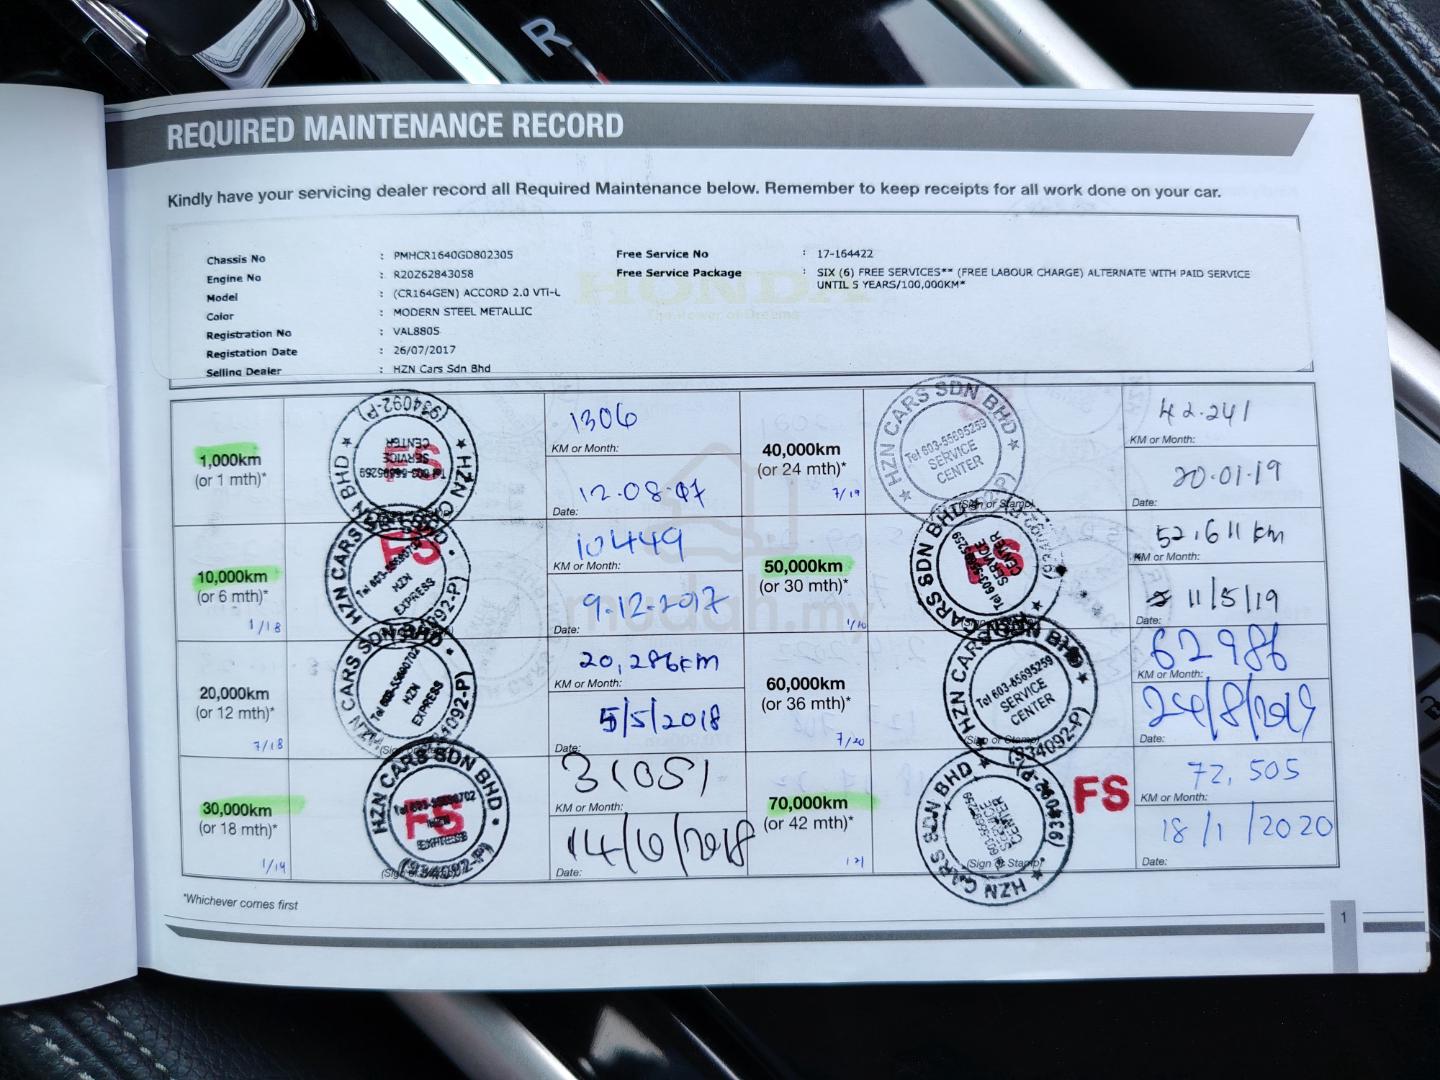 R
REQUIRED MAINTENANCE RECORD
Kindly have your servicing dealer record all Required Maintenance below. Remember to keep receipts for all work done on your car.
HONDA
The Power of Dreams
Chassis No : PMHCR1640GD802305
Engine No : R20Z62843058
Model : (CR164GEN) ACCORD 2.0 VTI-L
Color : MODERN STEEL METALLIC
Registration No : VAL8805
Registation Date : 26/07/2017
Selling Dealer : HZN Cars Sdn Bhd
Free Service No : 17-164422
Free Service Package : SIX (6) FREE SERVICES** (FREE LABOUR CHARGE) ALTERNATE WITH PAID SERVICE
UNTIL 5 YEARS/100,000KM*
1,000km
(or 1 mth)*
HZN CARS SDN BHD
(934092-P)
Tel 603-55695259
SERVICE
CENTER
FS
1306
KM or Month:
12.08.17
Date:
10,000km
(or 6 mth)*
1/18
HZN CARS SDN BHD
(934092-P)
Tel 603-55690702
HZN
EXPRESS
FS
10449
KM or Month:
9.12.2017
Date:
20,000km
(or 12 mth)*
7/18
HZN CARS SDN BHD
(934092-P)
Tel 603-55690702
HZN
EXPRESS
20,286km
KM or Month:
5/5/2018
Date:
30,000km
(or 18 mth)*
1/19
HZN CARS SDN BHD
(934092-P)
Tel 603-55690702
HZN
EXPRESS
FS
31051
KM or Month:
14/10/2018
Date:
40,000km
(or 24 mth)*
7/19
HZN CARS SDN BHD
Tel 603-55695259
SERVICE
CENTER
(Sign or Stamp)*
42.241
KM or Month:
20.01.19
Date:
50,000km
(or 30 mth)*
HZN CARS SDN BHD
(934092-P)
Tel 603-55695259
SERVICE
CENTER
FS
52,611 km
KM or Month:
11/5/19
Date:
60,000km
(or 36 mth)*
7/20
HZN CARS SDN BHD
(934092-P)
Tel 603-55695259
SERVICE
CENTER
(Sign or Stamp)*
62986
KM or Month:
24/8/2019
Date:
70,000km
(or 42 mth)*
HZN CARS SDN BHD
(934092-P)
SERVICE
CENTER
FS
(Sign or Stamp)*
72,505
KM or Month:
18/1/2020
Date:
mudah.my
*Whichever comes first
1